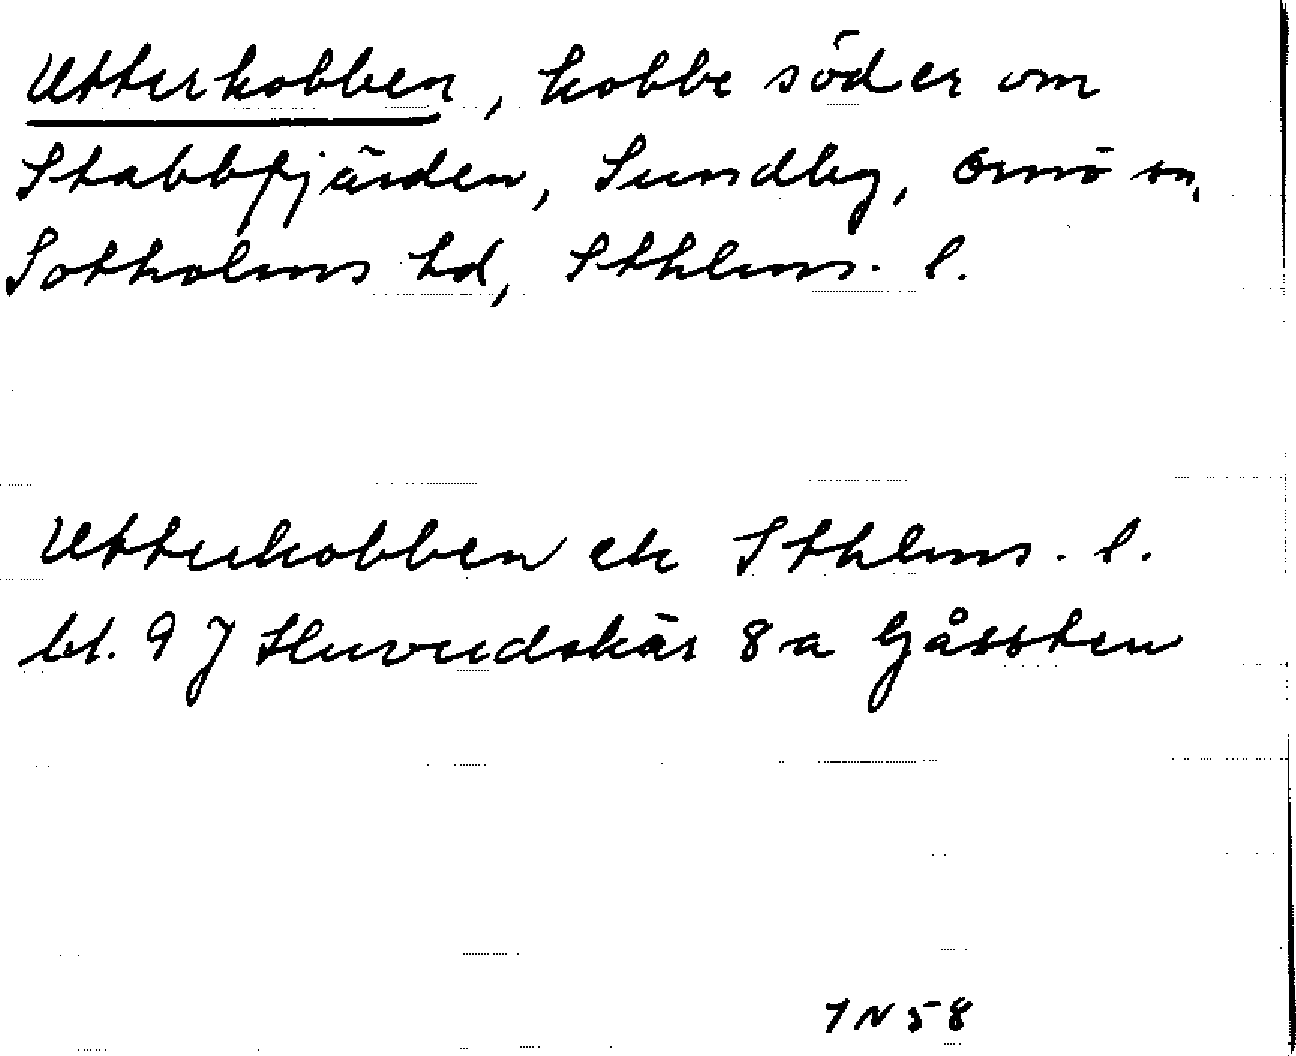 Utterkobben, kobbe söder om
Stabbfjärden, Sundby, Ornö sn,
Sotholms hd, Sthlms. l.
Utterkobben ek Sthlms. l.
bl. 9 J Huvudskär 8 a Gåssten
1N58